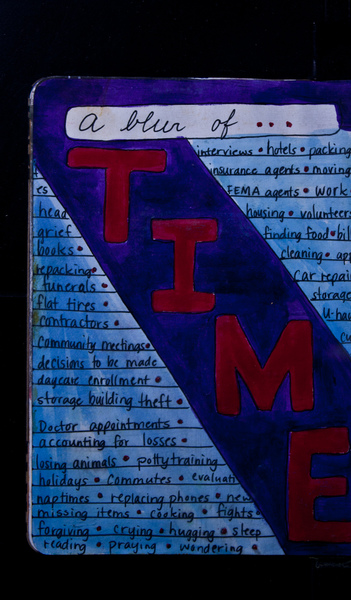 a blur of ...
TIME
interviews • hotels • packing
insurance agents • moving
es FEMA agents • work
head housing • volunteers
grief finding food • bil
books • cleaning • app
repacking • car repair
funerals • storage
flat tires • U-hau
contractors •
community meetings •
decisions to be made
daycare enrollment •
storage building theft •
Doctor appointments •
accounting for losses •
losing animals • potty training
holidays • commutes • evaluati
naptimes • replacing phones • new
missing items • cooking • fights •
forgiving • crying • hugging • sleep
reading • praying • wondering •